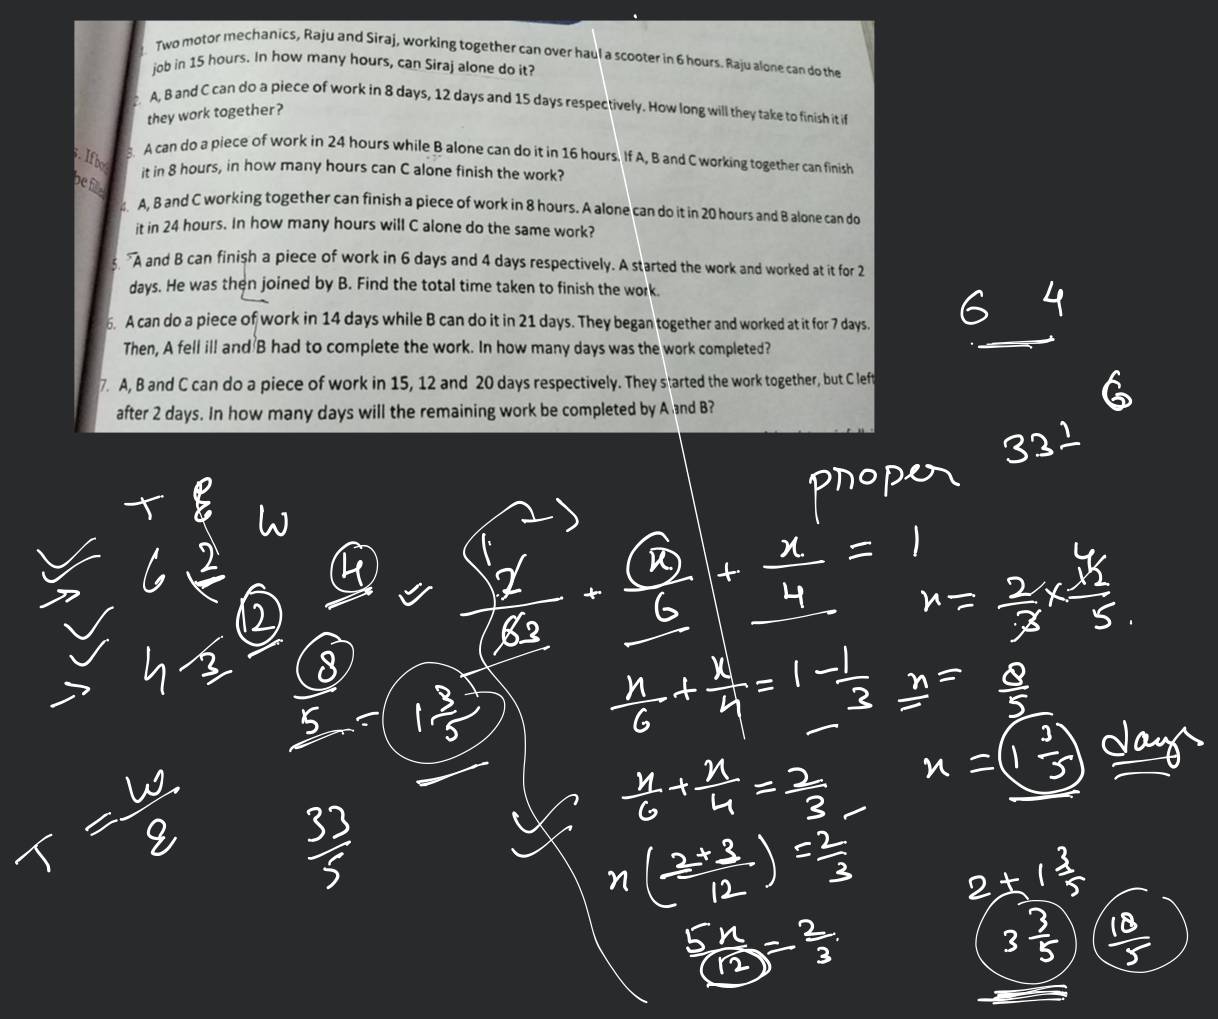 1. Two motor mechanics, Raju and Siraj, working together can over haul a scooter in 6 hours. Raju alone can do the
job in 15 hours. In how many hours, can Siraj alone do it?
2. A, B and C can do a piece of work in 8 days, 12 days and 15 days respectively. How long will they take to finish it if
they work together?
3. A can do a piece of work in 24 hours while B alone can do it in 16 hours. If A, B and C working together can finish
it in 8 hours, in how many hours can C alone finish the work?
4. A, B and C working together can finish a piece of work in 8 hours. A alone can do it in 20 hours and B alone can do
it in 24 hours. In how many hours will C alone do the same work?
5. A and B can finish a piece of work in 6 days and 4 days respectively. A started the work and worked at it for 2
days. He was then joined by B. Find the total time taken to finish the work.
6. A can do a piece of work in 14 days while B can do it in 21 days. They began together and worked at it for 7 days.
Then, A fell ill and B had to complete the work. In how many days was the work completed?
7. A, B and C can do a piece of work in 15, 12 and 20 days respectively. They started the work together, but C left
after 2 days. In how many days will the remaining work be completed by A and B?
5. If bo
be fille
6 4
6
33 1
proper
T E W
6 2 4
12
4 3 8
8/5 = 1 3/5
T = W/E
33/5
2/6 3 + x/6 + x/4 = 1
x/6 + x/4 = 1 - 1/3
x/6 + x/4 = 2/3
x(2+3/12) = 2/3
5x/12 = 2/3
x = 2/3 × 12/5 4
x = 8/5
x = 1 3/5 days
2 + 1 3/5
3 3/5 18/5